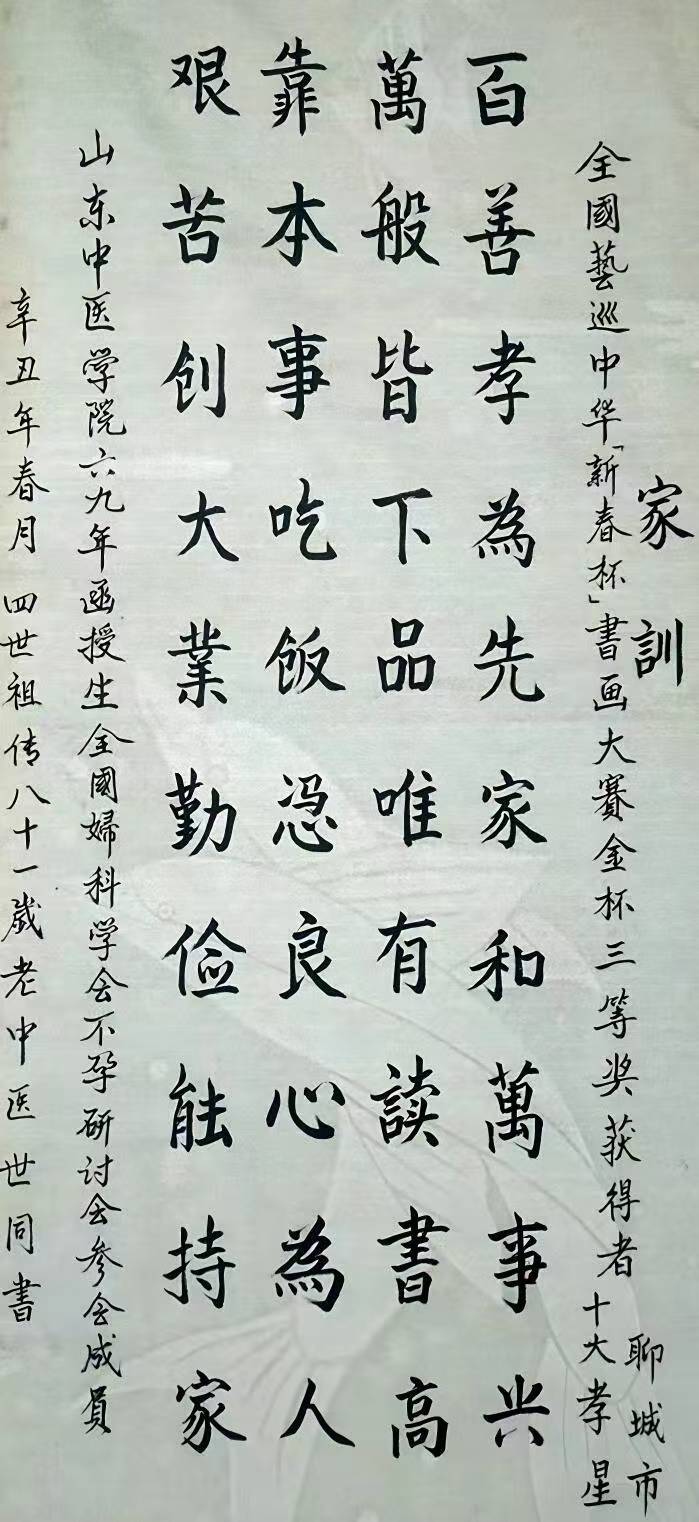 家訓
全國藝巡中华「新春杯」書画大賽金杯三等奖获得者
聊城市
十大孝星
百善孝為先家和萬事兴
萬般皆下品唯有読書高
靠本事吃飯凴良心為人
艰苦创大業勤俭能持家
山东中医学院六九年函授生全國婦科学会不孕研讨会参会成員
辛丑年春月 四世祖传八十一歲老中医世同書